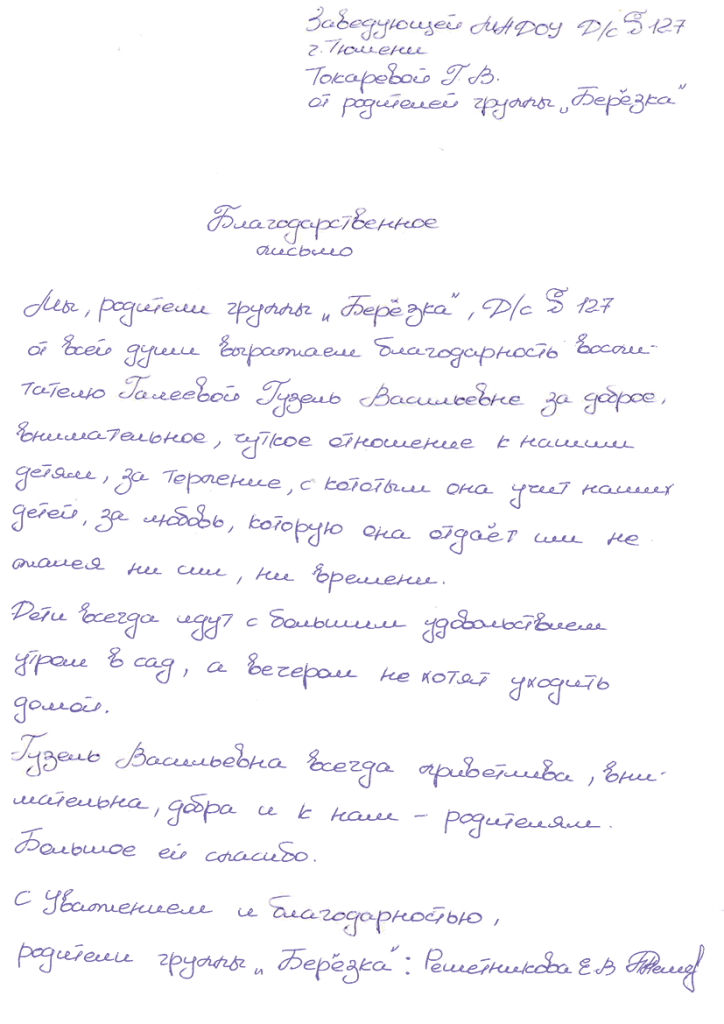 Заведующей МАДОУ Д/с № 127
г. Тюмени
Токаревой Г. В.
от родителей группы „Берёзка"
Благодарственное
письмо
Мы, родители группы „Берёзка", Д/с № 127
от всей души выражаем благодарность воспи-
тателю Галеевой Гузель Васильевне за доброе,
внимательное, чуткое отношение к нашим
детям, за терпение, с кототым она учит наших
детей, за любовь, которую она отдаёт им не
жалея ни сил, ни времени.
Дети всегда идут с большим удовольствием
утром в сад, а вечером не хотят уходить
домой.
Гузель Васильевна всегда приветлива, вни-
мательна, добра и к нам – родителям.
Большое ей спасибо.
С уважением и благодарностью,
родители группы „Берёзка": Решетникова Е В